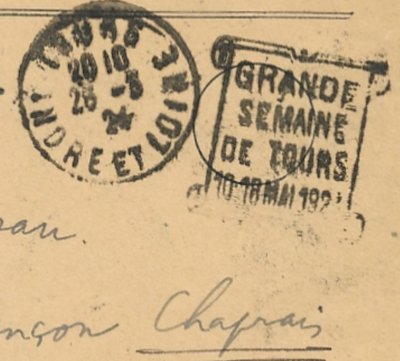 TOURS GARE
20 10
23 -3
24
INDRE ET LOIRE
GRANDE
SEMAINE
DE TOURS
10-18 MAI 1924
Chaprais